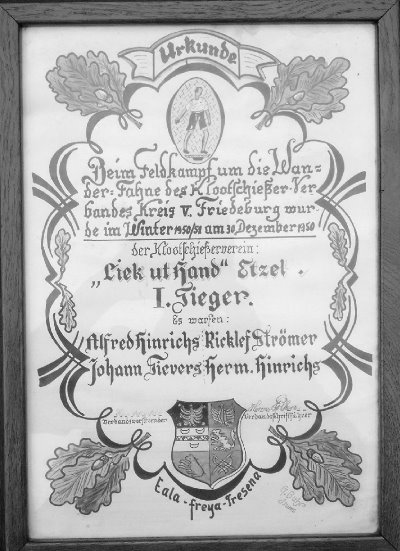 Urkunde
Beim Feldkampf um die Wan-
der-Fahne des Klootschießer-Ver
bandes Kreis V. Friedeburg wur-
de im Winter 1950/51 am 30. Dezember 1950
der Klootschießerverein:
„Liek ut Hand“ Etzel.
I. Sieger.
Es warfen:
Alfred Hinrichs Ricklef Strömer
Johann Sievers Herm. Hinrichs
Verbandsvorsitzender Verbandsschriftführer
Eala-freya-Fresena